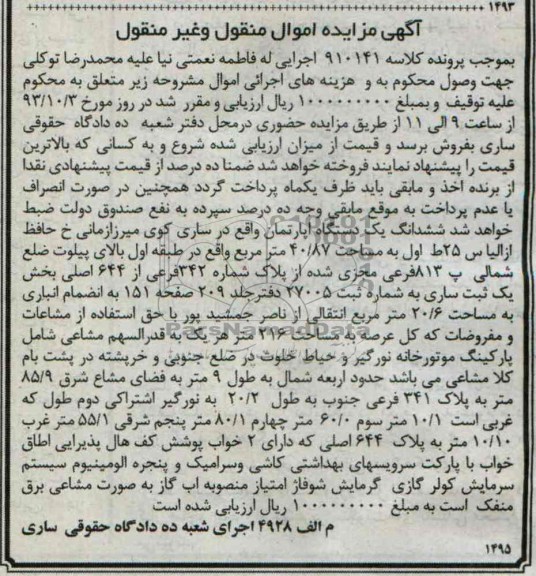 ۱۴۹۳
آگهی مزایده اموال منقول وغیر منقول
بموجب پرونده کلاسه ۹۱۰۱۴۱ اجرایی له فاطمه نعمتی نیا علیه محمدرضا توکلی
جهت وصول محکوم به و هزینه های اجرائی اموال مشروحه زیر متعلق به محکوم
علیه توقیف و بمبلغ ۱۰۰۰۰۰۰۰۰۰ ریال ارزیابی و مقرر شد در روز مورخ ۹۳/۱۰/۳
از ساعت ۹ الی ۱۱ از طریق مزایده حضوری درمحل دفتر شعبه ده دادگاه حقوقی
ساری بفروش برسد و قیمت از میزان ارزیابی شده شروع و به کسانی که بالاترین
قیمت را پیشنهاد نمایند فروخته خواهد شد ضمنا ده درصد از قیمت پیشنهادی نقدا
از برنده اخذ و مابقی باید ظرف یکماه پرداخت گردد همچنین در صورت انصراف
یا عدم پرداخت به موقع مابقی وجه ده درصد سپرده به نفع صندوق دولت ضبط
خواهد شد ششدانگ یک دستگاه آپارتمان واقع در ساری کوی میرزازمانی خ حافظ
ازالیا س ۲۵ط اول به مساحت ۴۰/۸۷ متر مربع واقع در طبقه اول بالای پیلوت ضلع
شمالی پ ۸۱۳فرعی مجزی شده از پلاک شماره ۳۴۲فرعی از ۶۴۴ اصلی بخش
یک ثبت ساری به شماره ثبت ۲۷۰۰۵ دفترجلد ۲۰۹ صفحه ۱۵۱ به انضمام انباری
به مساحت ۲۰/۶ متر مربع انتقالی از ناصر جمشید پور با حق استفاده از مشاعات
و مفروضات که کل عرصه به مساحت ۲۱۶ متر هر یک به قدرالسهم مشاعی شامل
پارکینگ موتورخانه نورگیر و حیاط خلوت در ضلع جنوبی و خرپشته در پشت بام
کلا مشاعی می باشد حدود اربعه شمال به طول ۹ متر به فضای مشاع شرق ۸۵/۹
متر به پلاک ۳۴۱ فرعی جنوب به طول ۲۰/۲ به نورگیر اشتراکی دوم طول که
غربی است ۱۰/۱ متر سوم ۶۰/۰ متر چهارم ۸۰/۱ متر پنجم شرقی ۵۵/۱ متر غرب
۱۰/۱۰ متر به پلاک ۶۴۴ اصلی که دارای ۲ خواب پوشش کف هال پذیرایی اطاق
خواب با پارکت سرویسهای بهداشتی کاشی وسرامیک و پنجره الومینیوم سیستم
سرمایش کولر گازی گرمایش شوفاژ امتیاز منصوبه اب گاز به صورت مشاعی برق
منفک است به مبلغ ۱۰۰۰۰۰۰۰۰۰ ریال ارزیابی شده است
م الف ۴۹۲۸ اجرای شعبه ده دادگاه حقوقی ساری
۱۴۹۵
ParsNamadData